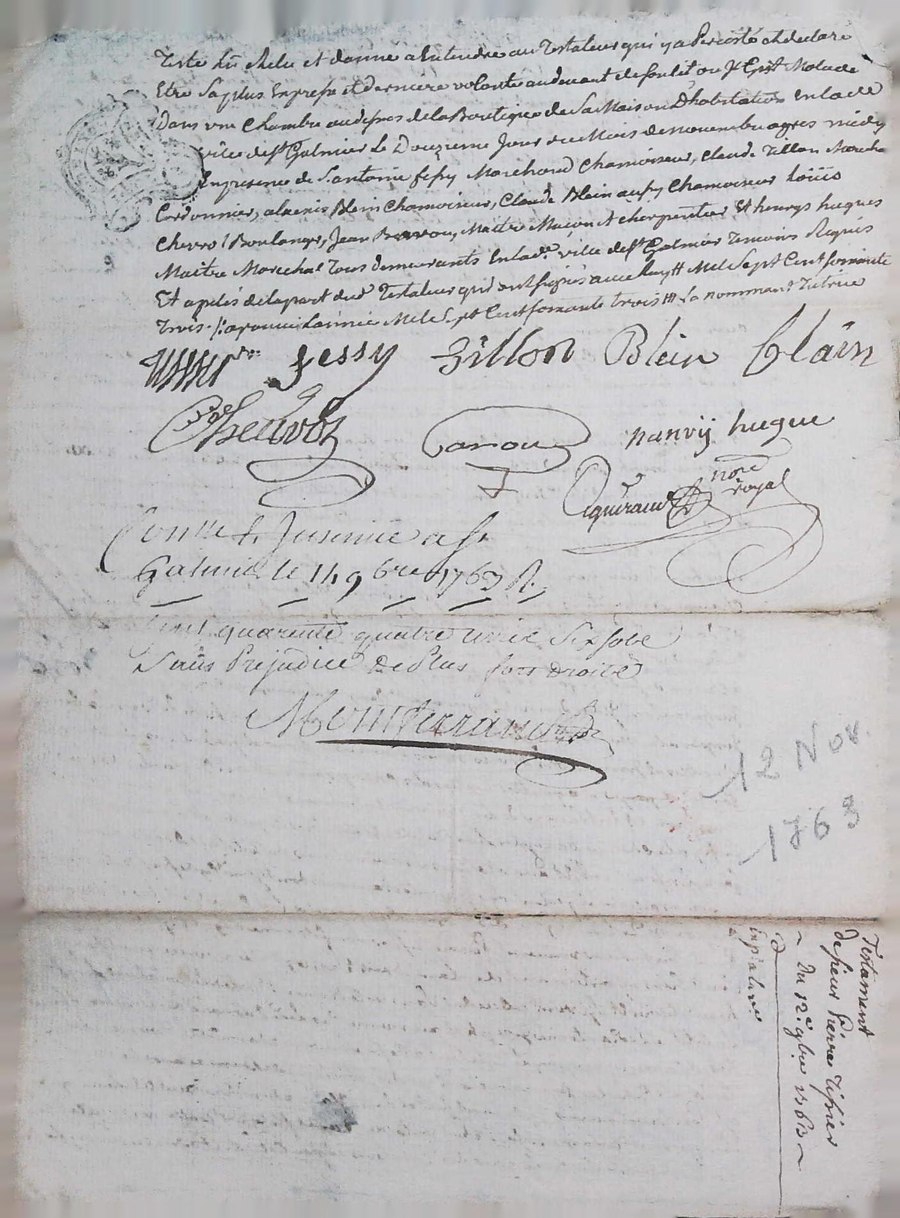 Testé Lû Relu et donné a Entendre au Testateur qui y a Percisté et declaré
Etre sa plus Expresse et derniere volonté au devant de son lit ou Jl Est Malade
Dans une Chambre au dessus de la Boutique de Sa Maison D'habitation En lade
ville de St Galmier Le Douzieme Jour du Mois de novembre apres midy
En presence de S. antoine fessy Marchand Chamoiseur, Claude Zillon Marcha
Cordonnier, alexis Blein Chamoiseur, Claude Blein aussy Chamoiseur Loüis
Boulanger, Jean Maitre Macon et charpentier Et henrys hugues
Maitre Marechal Tous demeurants En lade. ville de St Galmier Temoins Signés
Et de la part dud Testateur qui ont signés avec luy Mil Sept Cent soixante
Trois. Mil Sept Cent soixante trois La nommant Tutrice
fessy Zillon Blein blain
nanvij hugue
nore
royal
Con.lle & Jnsinüé a St
Galmier le 14 9bre 1763 R.
quarente quatre livre Six sols
Sans Préjudice de Plus fors droits
12 Nov.
1763
Testament
de sieur Pierre Tissier
Du 12e. 9bre 1763